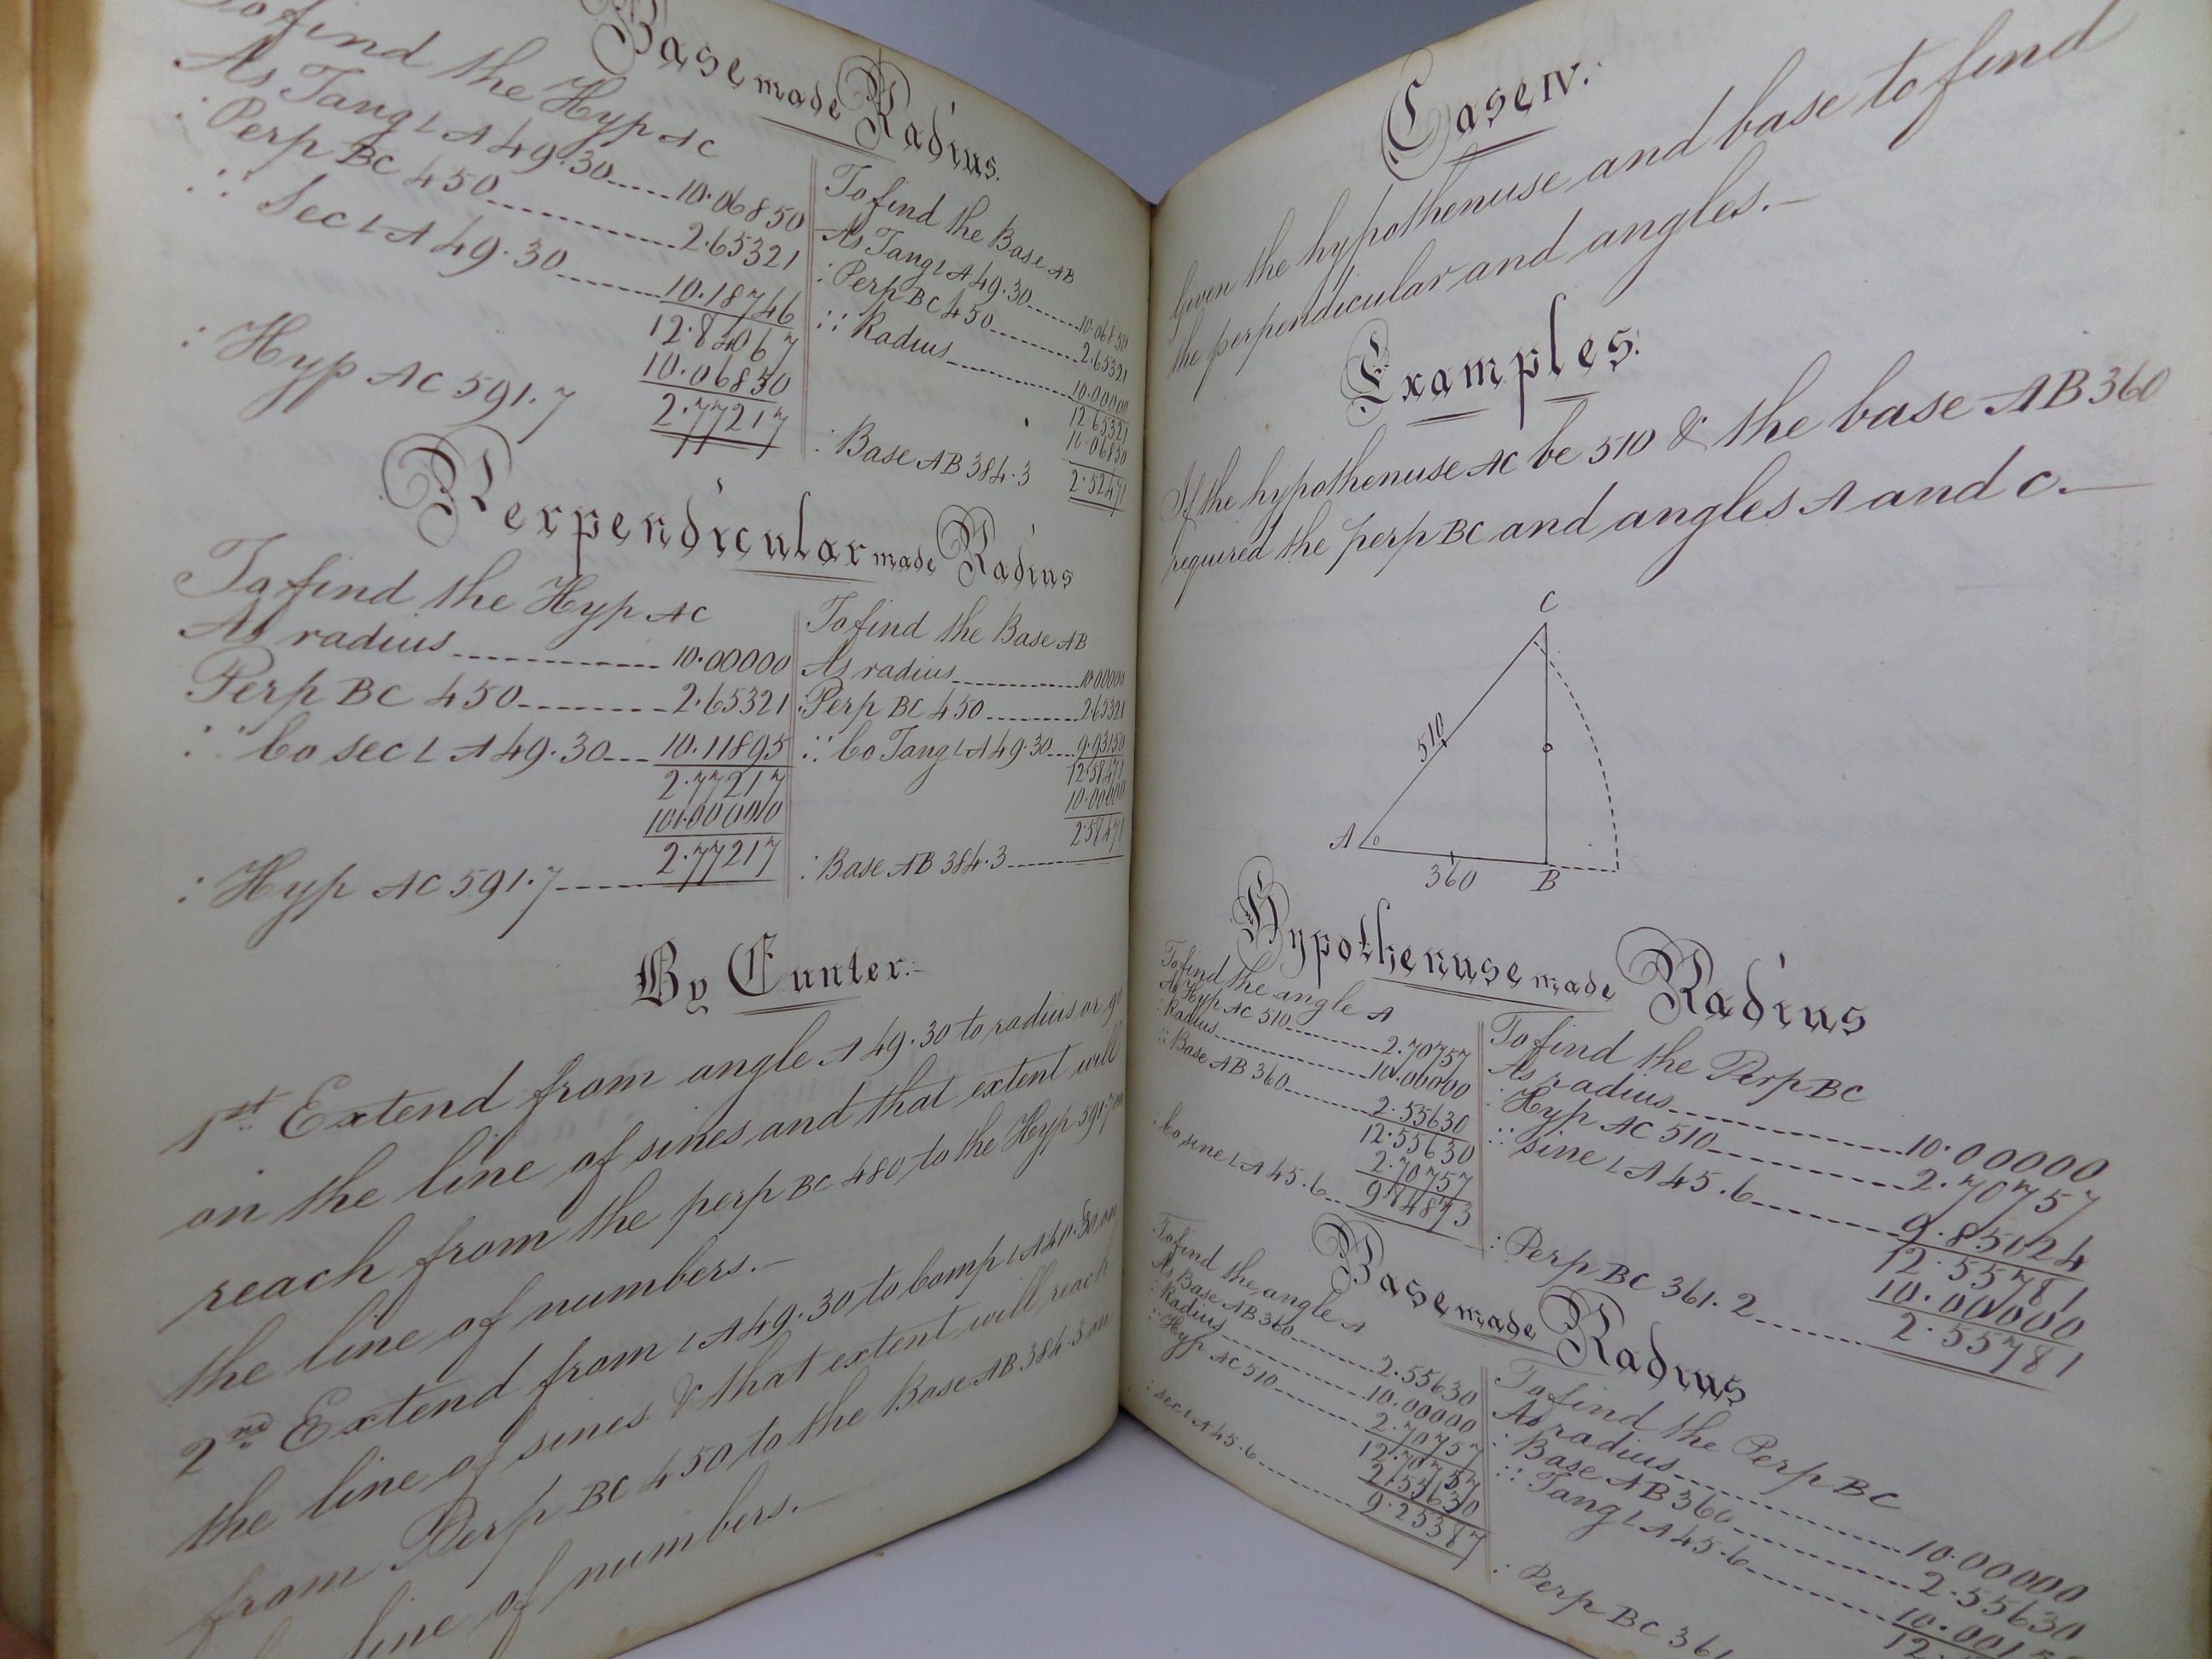 Base made Radius.
To find the Hyp AC
As Tang ∠ A 49.30 10.06850
: Perp BC 450 2.65321
:: Sec ∠ A 49.30 10.18746
12.84067
10.06850
: Hyp AC 591.7 2.77217
To find the Base AB
As Tang ∠ A 49.30 10.06850
: Perp BC 450 2.65321
:: Radius 10.00000
12.65321
10.06850
: Base AB 384.3
Perpendicular made Radius
To find the Hyp AC
As radius 10.00000
Perp BC 450 2.65321
:: Co sec ∠ A 49.30 10.11895
2.77217
2.77217
: Hyp AC 591.7
To find the Base AB
As radius 10.00000
: Perp BC 450 2.65321
:: Co Tang ∠ A 49.30 9.93150
12.58471
10.00000
2.58471
: Base AB 384.3
By Gunter.
1st Extend from angle A 49.30 to radius or 90
on the line of sines and that extent will
reach from the perp BC 480 to the Hyp 591.7 on
the line of numbers.
2nd Extend from ∠ A 49.30 to Comp ∠ A on
the line of sines & that extent will reach
from Perp BC 450 to the Base AB 384.3 on
line of numbers.
Case IV.
Given the hypothenuse and base to find
the perpendicular and angles.
Examples.
If the hypothenuse AC be 510 & the base AB 360
required the perp BC and angles A and C.
C
510
A
360 B
Hypothenuse made Radius
To find the angle A
As Hyp AC 510 2.70757
: Radius 10.00000
:: Base AB 360 2.55630
12.55630
2.70757
: Co sine ∠ A 45.6 9.84873
To find the Perp BC
As radius 10.00000
: Hyp AC 510 2.70757
:: Sine ∠ A 45.6 9.85024
12.55781
10.00000
: Perp BC 361.2 2.55781
Base made Radius
To find the angle A
As Base AB 360 2.55630
: Radius 10.00000
:: Hyp AC 510 2.70757
12.70757
2.55630
: Sec ∠ A 45.6 9.25387
To find the Perp BC
As radius 10.00000
: Base AB 360 2.55630
:: Tang ∠ A 45.6 10.001
12.
: Perp BC 361